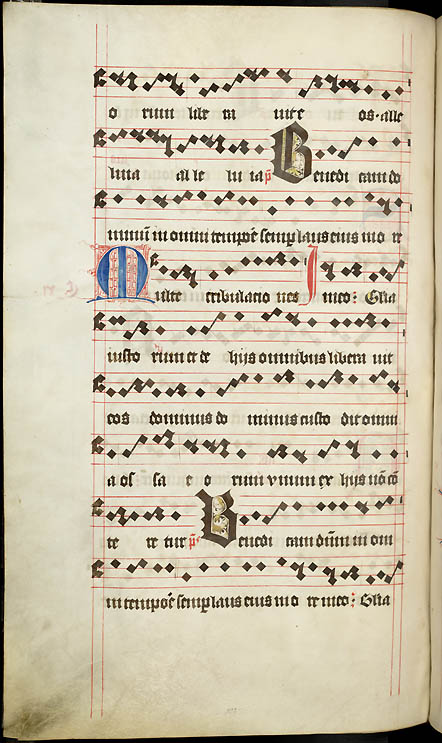 o rum libe ra uit e os. alle
luia al le lu ia p̄s Benedi cam do
minū in omni tempor̄e semp laus eius in o re
Multe tribulatio nes I meo: Glīa
iusto rum et de hijs omnibus libera uit
eos dominus do minus custo dit omni
a os sa e o rum unum ex hijs nō cō
te re tur p̄s Benedi cam dūm in om
ni tempor̄e semp laus eius in o re meo: Glīa